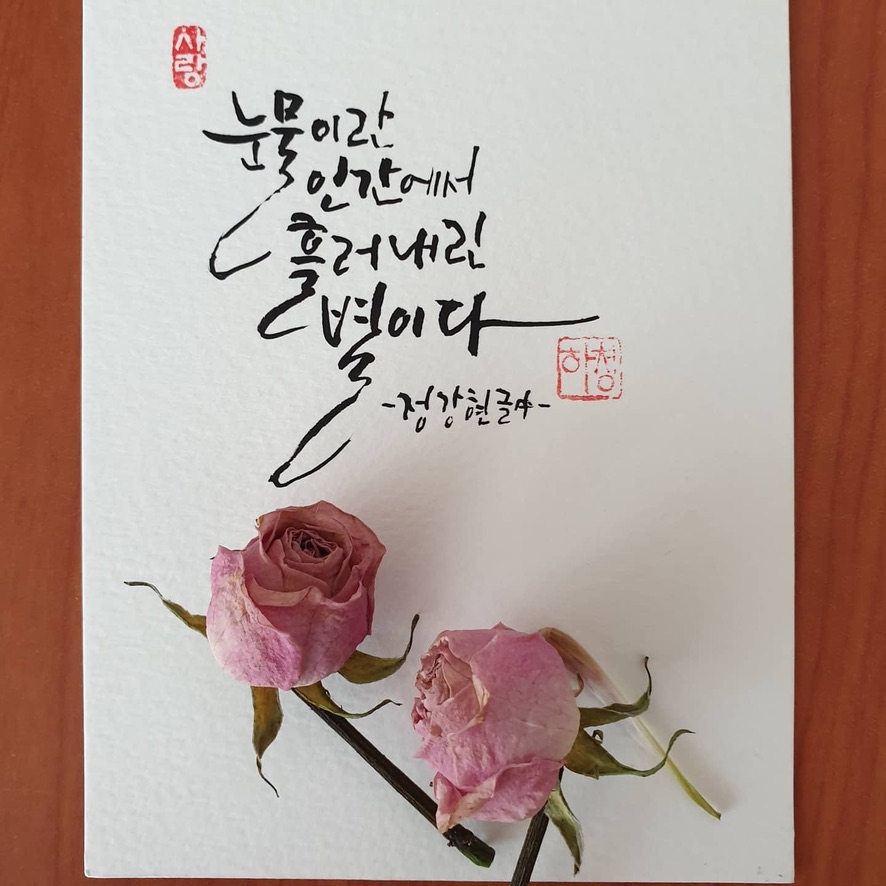 사랑
눈물이란
인간에서
흘러내린
별이다
-정강현글中-
하청